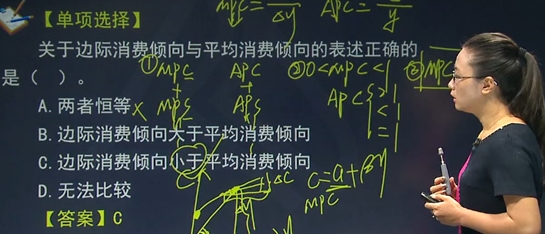 MPC = ― / Δy  APC = ― / y
【单项选择】
关于边际消费倾向与平均消费倾向的表述正确的
是（　）。
① MPC  APC  ② 0<MPC<1  ③ MPC
A. 两者恒等 ×  MPS  APS  APC >1
<1
=1
B. 边际消费倾向大于平均消费倾向
C. 边际消费倾向小于平均消费倾向
C=a+βy
MPC
ΔC
D. 无法比较
【答案】C